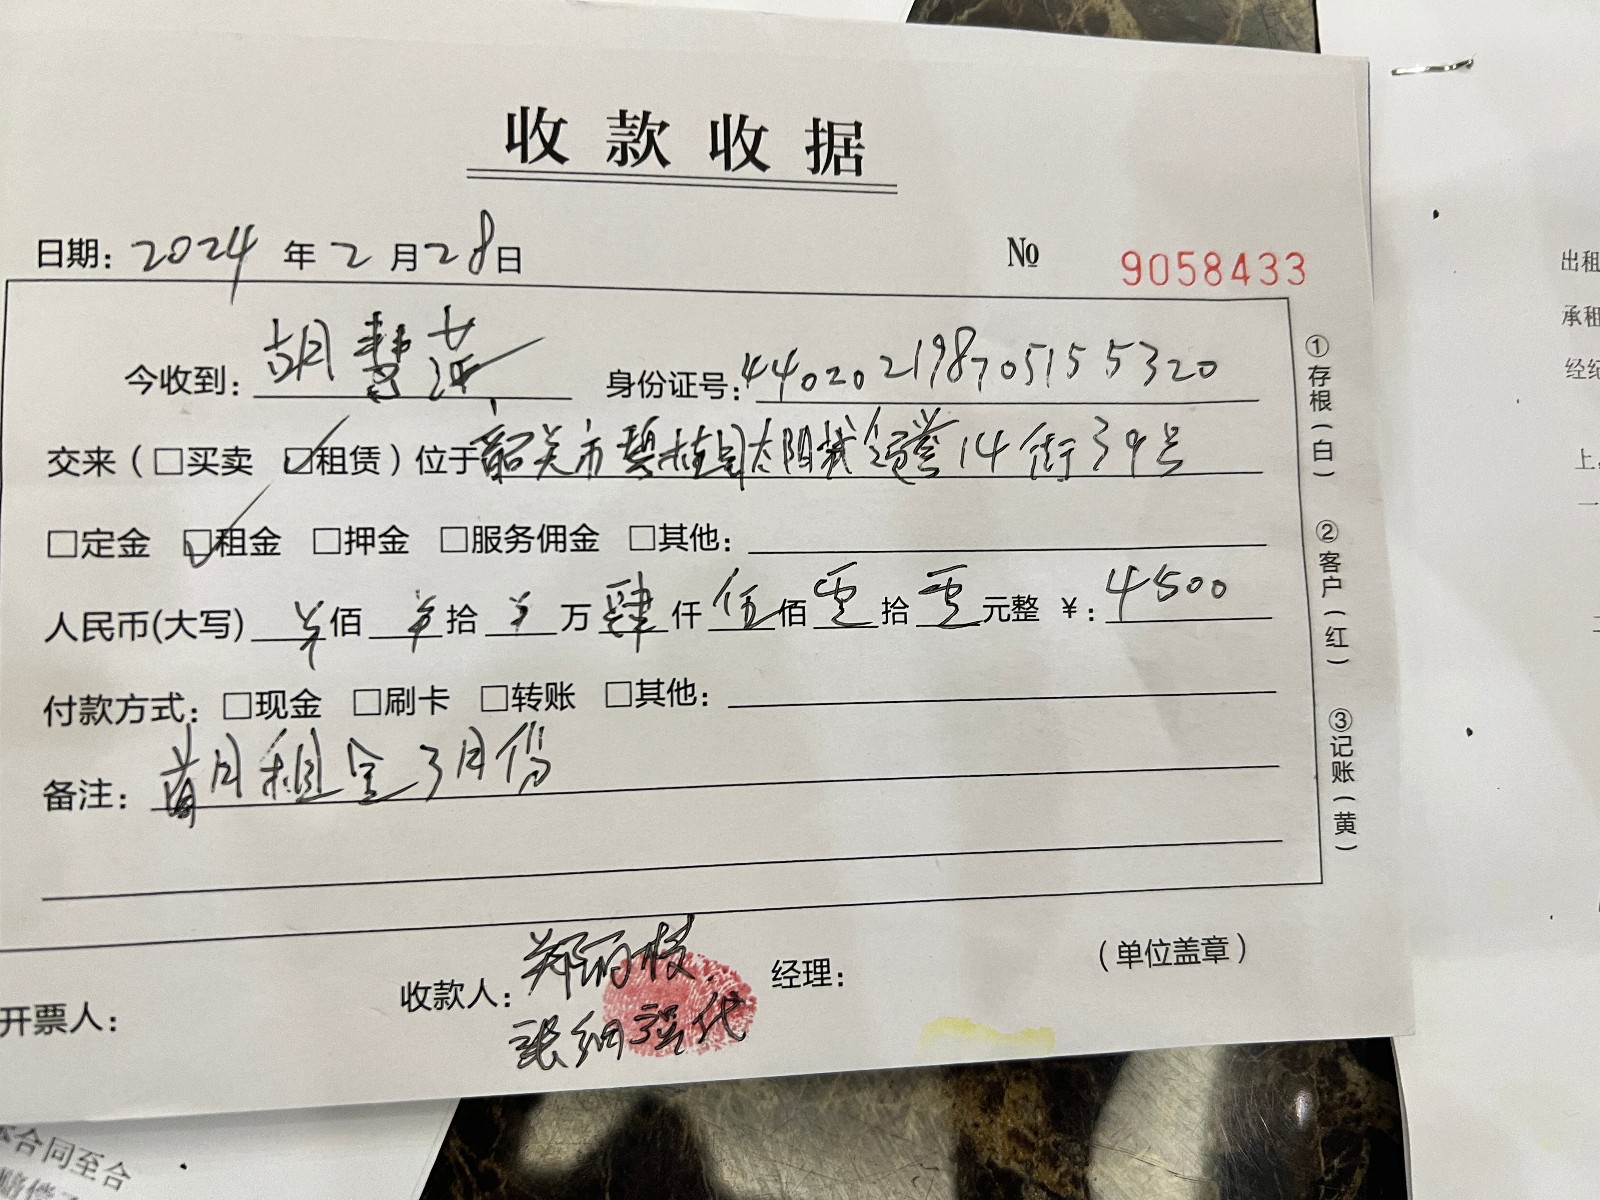 收款收据
日期：2024年2月28日 № 9058433
今收到：胡慧萍 身份证号：440202198705155320
交来（□买卖 ☑租赁）位于韶关市碧桂园太阳城翠誉14街39号
□定金 ☑租金 □押金 □服务佣金 □其他：
人民币(大写) ¥佰 ¥拾 ¥万肆仟伍佰零拾零元整 ¥：4500
付款方式：□现金 □刷卡 □转账 □其他：
备注：首月租金3月份
开票人： 收款人：郑丽枝 经理： （单位盖章）
张细强代
①存根（白） ②客户（红） ③记账（黄）
出租
承租
经纪
上，
一
合同至合
赔偿